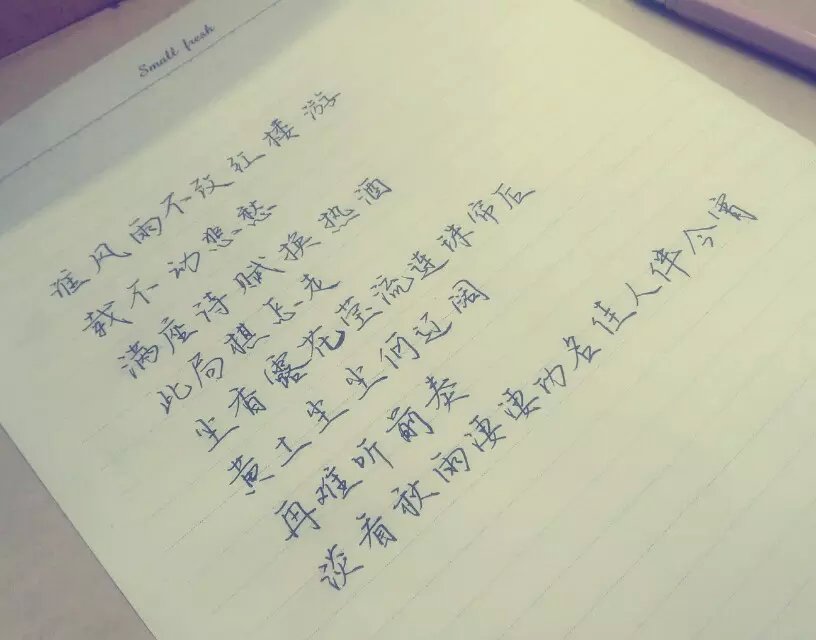 Small fresh
谁风雨不改红楼游
载不动悲愁
满座诗赋换热酒
此局棋怎走
坐看露花莹流连珠帘后
黄土尘尘辽阔
再难听前奏
淡看秋雨凄凄功名佳人伴今宵